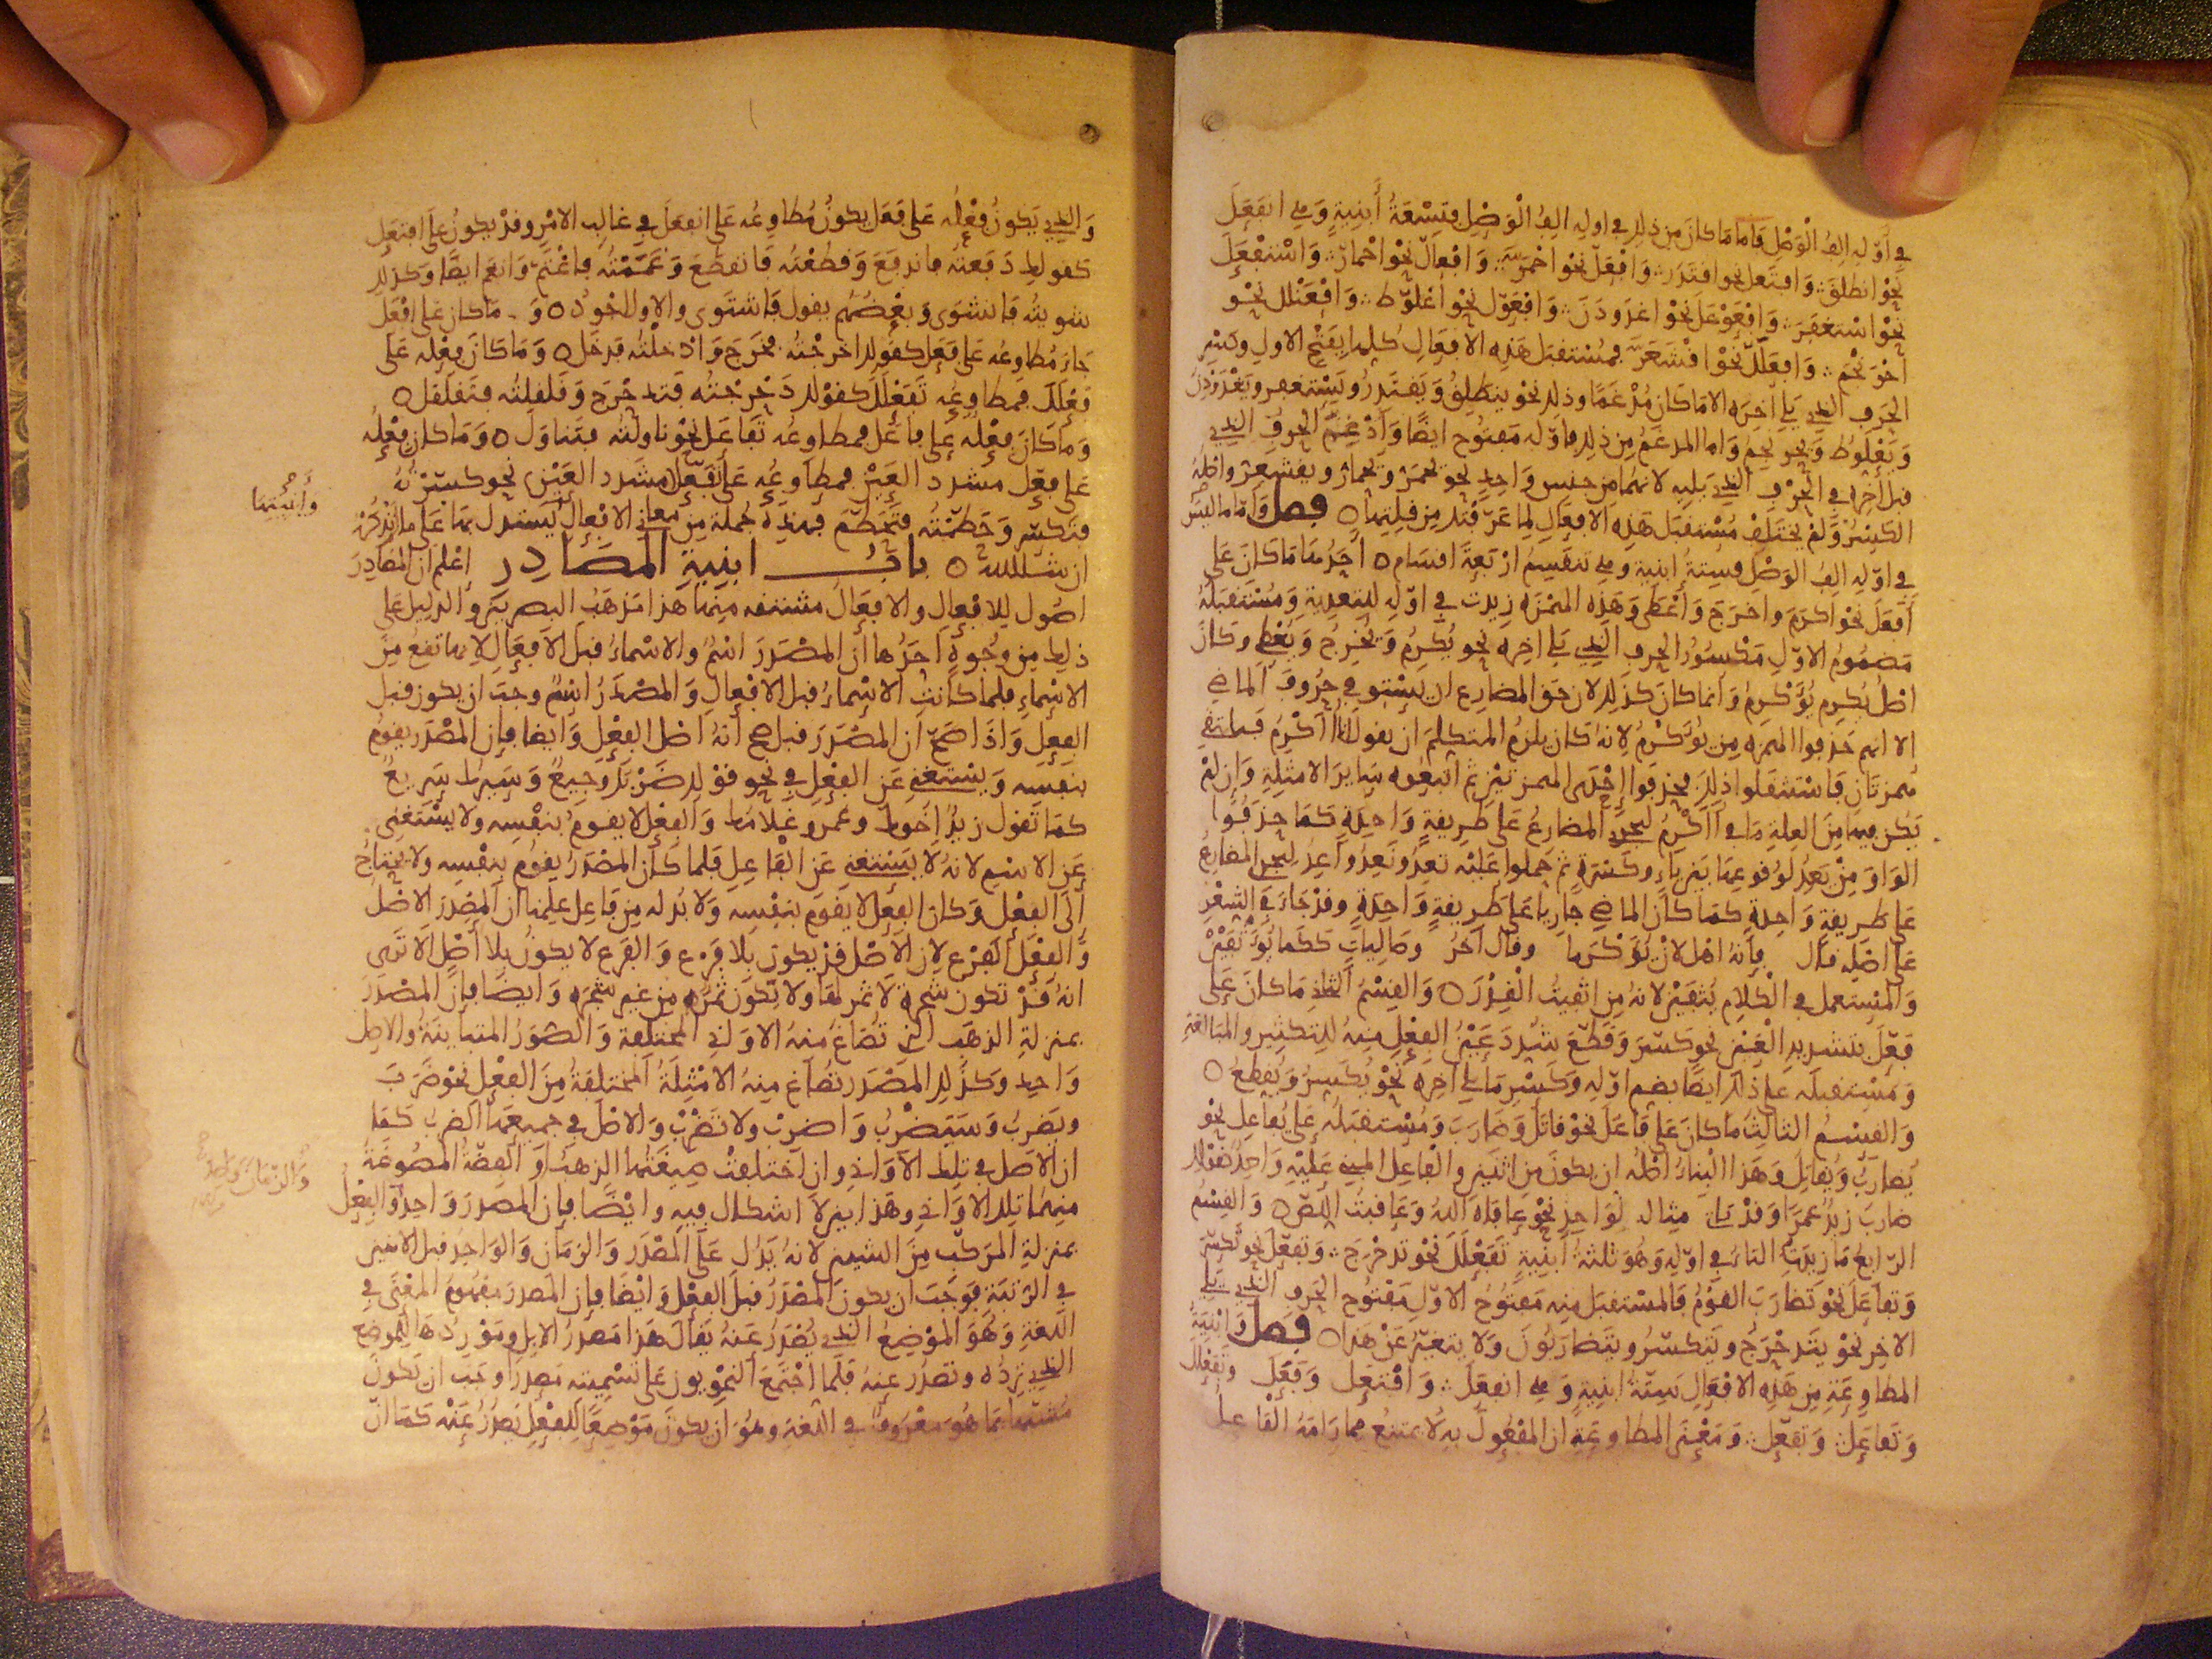 في أوّله الِفُ الْوَصْلِ فَامّا مَا كانَ من ذلك في اوله الِفُ الْوَصْلِ فتِسْعَةُ أَبنِيةٍ وَهي انفَعَلَ
نَحْوُ انطلَقَ وَافتَعل نحو اقتَدَرَ وَافْعَلّ نحو احْمَرَّ وَافعالّ نحْوُ احْمارّ وَاسْتَفْعَلَ
نحْوُ اسْتغفَرَ وَافْعَوْعَلَ نحْوُ اغْدَودَنَ وَافْعَوّل نحْوُ اعْلوّط وَافْعَنْلل نحْو
احْرَنْجَمَ وَافْعَلَلَّ نحْوُ اقْشَعَرَّ فمُسْتقبَل هَذِه الافعَالِ كُلها بفَتْح الاول وكَسْرِ
الحَرفِ الذِي يَلي آخِرَه الا مَا كانَ مُدْغَمًا وذلك نحو ينطلِقُ وَيَقتَدِرُ ويَسْتغفِر ويَغْدَوْدِنُ
وَيَعْلَوّطُ وَيحرنجِمُ وَاما المدغَمُ مِن ذلك فاوّله مَفتوُح ايضًا وَأُدْغِمَ الحرفُ الذِي
قبل آخِرِه في الحرْفِ الذي يليه لانهُما مِن جنسٍ وَاحِدٍ نحو يحمَرّ ويحمارّ ويقشعرّ واصْلُهُ
الكَسْرُ وَلَمْ يختَلِف مُسْتقبَل هَذِه الافعَالِ لِما عَرّفتُك مِن قِلتِها فصل وَامّا ما ليْسَ
في اوّله الِفُ الوَصْلِ فسِتةُ ابنية وهي تنقَسِمُ ارْبَعةَ اقسَام احَدُها مَا كَانَ عَلى
أَفعَلَ نحْوُ اكرَمَ واخرَجَ وَأعْطَى وَهَذِه الهَمْزَه زِيدت في اوّلِه لِلتعدِيةِ وَمُسْتَقبَلُهُ
مَضمُومُ الاوّلِ مَكْسُورُ الحَرف الذِي يَلي اخِره نحو يُكرِمُ وَيُخرِجُ وَيُعْطِي وكانَ
اصْلُ يُكرِم يُؤَكْرِمُ وَانّما كانَ كذلِك لان حَقّ المضارِع ان يَسْتوفي حُرُوفَ الماضِي
الا انهم حَذفوا الهمزه مِن يُؤَكْرِمُ لِانهُ كان يلزمُ المتكلمَ ان يقول أنا أُأَكْرِمُ فتَلتَقي
هَمزتَانِ فَاسْتَثقَلوا ذلِكَ فحذفوا إحْدَى الهمزتيْنِ ثم أتْبَعُوه سَايرَ الامثلةِ وَإن لَمْ
يَكُن فيها مِنَ العِلةِ مَا في أُأَكْرِمُ ليجري المضارعُ عَلى طَرِيقةٍ وَاحِدَةٍ كَمَا حَذَفُوا
الوَاوَ مِنْ يَعِدُ لوُقوعِها بَيْنَ ياءٍ وكَسْرَةٍ ثم حَملوا عَليْه تعِدُ ونَعِدُ وأَعِدُ لِيجري المضارِعُ
عَلى طَريقةٍ وَاحِدةٍ كمَا كانَ الماضِي جارِيا عَلى طَرِيقةٍ وَاحِدَةٍ وقدْ جَاءَ في الشعْرِ
عَلى اصْلِه قال فإنهُ اهْل لانْ يُؤَكْرَما وقالَ آخَرُ وصَالِياتٍ كَكَما يُؤَثْفَيْنْ
وَالمُسْتعمل في الكلامِ يُثفَيْن لانهُ مِن اثفيتُ الْقِدْرَ وَالقِسْمُ الثاني مَا كانَ عَلى
فَعّلَ بتشديدِ العَيْن نحو كسّرَ وَقَطّعَ شُدِّدَ عَيْنُ الفِعْلِ مِنهُ لِلتكثيرِ والمبَالغَةِ
وَمُسْتقبله على ذلك ايضًا بضم اوّله وكَسْرِ مَا يلي آخِره نحْوُ يُكسِّرُ وَيُقطِّعُ
وَالقِسْمُ الثالثُ مَا كانَ عَلى فَاعَلَ نحْوُ قاتلَ وَضَارَبَ وَمُسْتقبَلُه عَلى يُفاعِل نحْو
يُضارِبُ وَيُقاتِلُ وَهَذا الْبِناءُ اصْلُه ان يكونَ مِن اثنَينِ والفاعِل المبني عَليْهِ وَاحِدٌ كقَوْلِك
ضارَبَ زيدٌ عَمْرًا وَقدْ يأتي مثاله لوَاحِدٍ نحْو عافاهُ اللهُ وَعَاقبتُ اللصّ وَالقِسْمُ
الرّابعُ مَا زيدَتِ التاءُ في اوّلِه وَهُوَ ثلثةُ ابنِيةٍ تَفَعْلَلَ نحْوُ تدَحْرَجَ وَتفعّل نحوُ تَكسّرَ
وَتفاعَلَ نحْوُ تَضَارَبَ القَوْمُ فَالمسْتقبَل مِنه مَفتوُحُ الاوّلِ مَفْتوُح الحَرفِ الذِي يَلي
الاخِر نحْوُ يتَدَحْرَجُ ويَتكسّرُ ويتَضارَبُونَ وَلا يتغيّرُ عَنْ هَذا فصل وَابْنِيَةُ
المطاوِعَةِ مِن هَذِه الافْعَالِ سِتّةُ ابنِيةٍ وَهي انفعَلَ وَافْتعَل وَفَعَل وتَفَعْلَلَ
وَتَفاعَل وَتفَعّل وَمَعْنَى المطاوعَةِ ان المفْعُولَ بهِ لا يمتنعُ مِما رَامَهُ الْفَاعِلُ
وَالذِي يَكونُ فِعْلُه عَلى فَعَل يكونُ مُطاوعُه عَلى انفعَلَ في غالِب الامْرِ وقدْ يكونُ عَلى افتَعَل
كقولك دَفعتُه فاندفَعَ وَقطعْتُه فَانقطَعَ وَغَمَمْتُه فاغْتَمّ وَانغَمّ ايضًا وَكذلك
شويتُه فَانشوَى وَبعْضُهُم يقول فَاشتوَى والاول اجْوَدُ وَمَا كانَ عَلى افْعَلَ
جَاءَ مُطاوِعُه عَلى فَعَل كقولك اخرجْتُه فخرَجَ وَادْخَلْتُه فدَخَل وَمَا كانَ فِعْلُه عَلى
فَعْلَلَ فمطاوعُه تَفَعْلَلَ كقوْلك دَحْرَجْتُه فَتدحْرَجَ وَقَلقلتُه فتَقلقل
وَما كانَ فِعْلُه عَلى فاعَل فمطاوعُه تَفَاعَل نحْوُ ناولته فتَناوَل وَمَا كان فِعْلُه
عَلى فعّل مشدد العَيْن فمطاوِعُه عَلى تَفَعّل مشدد العَيْن نحو كسّرْتُهُ
فتكسّر وَحَطمْتُه فتَحَطّمَ فهَذِه جُملة مِن مَعاني الافعالِ يُستدَل بها عَلى ما لَمْ نذكرْهُ
وأبنِيَتِها
ان شاء الله باب ابنِيَةِ المَصَادِر إعْلم ان المصَادِرَ
اصُول لِلافعالِ والافعَالُ مشتقه مِنها هذا مَذهَبُ البصريينَ والدليل عَلى
ذلك مِن وجُوهٍ احَدُها أن المصْدَرَ اسْمٌ والاسْماءُ قبل الافعَالِ لانها تقعُ مِنَ
الاسْماءِ فلما كانتِ الاسْماءُ قبل الافعالِ وَالمصْدَرُ اسْمٌ وجبَ ان يكون قبل
الفِعلِ وَاذا صَحّ ان المصْدَرَ قبل صح أنهُ اصْل الفِعْلِ وَايضا فإن المصْدَر يقومُ
بنفسِه وَيسْتغني عَن الفِعْلِ في نحو قوْلِك ضَرْبُكَ وَجيعٌ وَسَيرُك سَرِيعٌ
كمَا تقول زيدٌ اخُوك وعَمرو غلامُك وَالفِعْل لا يقومُ بنفْسِه ولا يسْتَغني
عَن الاسْمِ لانهُ لا يسْتغني عَن الفَاعِلِ فلما كانَ المصْدَرُ يقومُ بنفْسِه ولا يحتاجُ
إلى الفِعْل وَكانَ الفِعل لا يقومُ بنفْسِه وَلا بُدّ له مِن فَاعِل علِمنا ان المصْدَرَ الاصْلُ
وَالفِعْلَ الفرْع لان الاصْل قدْ يكون بلا فَرْعٍ وَالفَرع لا يكونُ بلا أصْلٍ ألا تَرى
انهُ قَدْ تكون شجرةٌ لا ثمَر لها ولا تكونُ ثمَرَه مِن غير شجَرَه وَايضًا فإن المصْدَرَ
بمنزلةِ الذهَبِ الذي تُصَاغُ مِنهُ الاوَاني المختلفة وَالصُّوَرُ المتباينةُ والاصل
وَاحِد وكذلِك المصْدَر تصَاغ مِنه الامْثِلةُ المختلفةُ مِنَ الفِعْل نحْوُ ضَرَبَ
ويَضربُ وَسَيَضْرِبُ وَاضرِبْ ولا تَضْرِبْ وَالاصْل في جميعِها الضربُ كَمَا
ان الاصْل في تِلك الاوَاني وان اختلفتْ صِيغَتُها الذهبُ أوِ الفِضّةُ المصُوغَةُ
مِنهُما تلك الاوَاني وهَذا بينٌ لا اشكال فِيهِ وايْضًا فإن المصدَرَ وَاحِدٌ وَالفِعْلُ
بمنزلةِ المرَكّب مِنَ الشيئين لانهُ يَدُل عَلى المصْدَرِ وَالزمَانِ وَالوَاحِدُ قبل الاثنين
في الرّتبَةِ فوَجَبَ ان يكونَ المصْدَرُ قبلَ الفِعْلِ وَايْضًا فإن المصدرَ مفهومُ المعْنَى في
اللغةِ وَهُوَ الموْضِعُ الذِي يُصْدَرُ عَنهُ يقالُ هَذا مَصدَرُ الابِل ومَوْرِدُها للموضع
الذِي تردُه وتصدُر عنهُ فلمّا اجْتمَعَ النحويون عَلى تسْمِيتِه مَصْدَرًا وجبَ ان يكونَ
مشبّها بمَا هُوَ مَعْروُفٌ في اللغةِ وهُوَ ان يكونَ مَوْضِعًا للفِعْلِ يَصدُرُ عَنْه كَمَا انّ